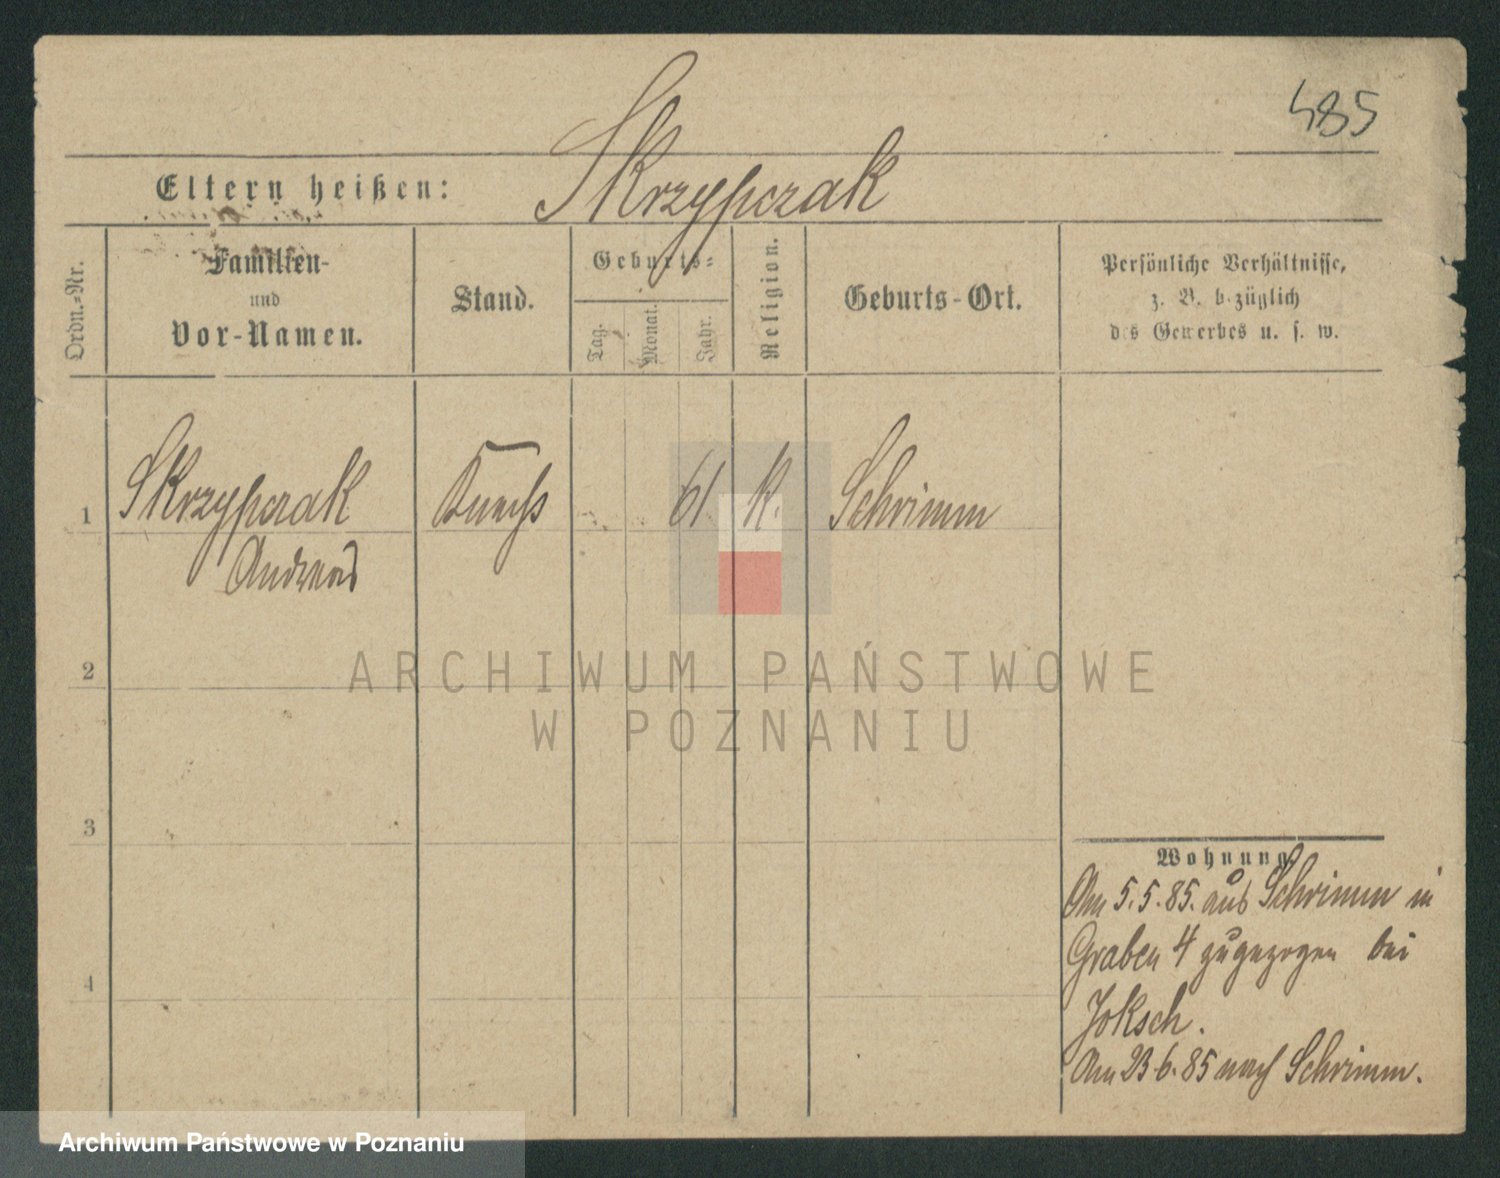 485
Skrzypczak
Eltern heißen:
Ordn.-Nr.
Familien-
und
Vor-Namen.
Stand.
Geburts-
Tag.
Monat.
Jahr.
Religion.
Geburts-Ort.
Persönliche Verhältnisse,
z. B. bezüglich
des Gewerbes u. s. w.
1 Skrzypczak Knecht 61 K. Schrimm
Andreas
2
3
4
Wohnung
Am 5.5.85. aus Schrimm in
Graben 4 zugezogen bei
Joksch.
Am 23.6.85 nach Schrimm.
ARCHIWUM PAŃSTWOWE
W POZNANIU
Archiwum Państwowe w Poznaniu